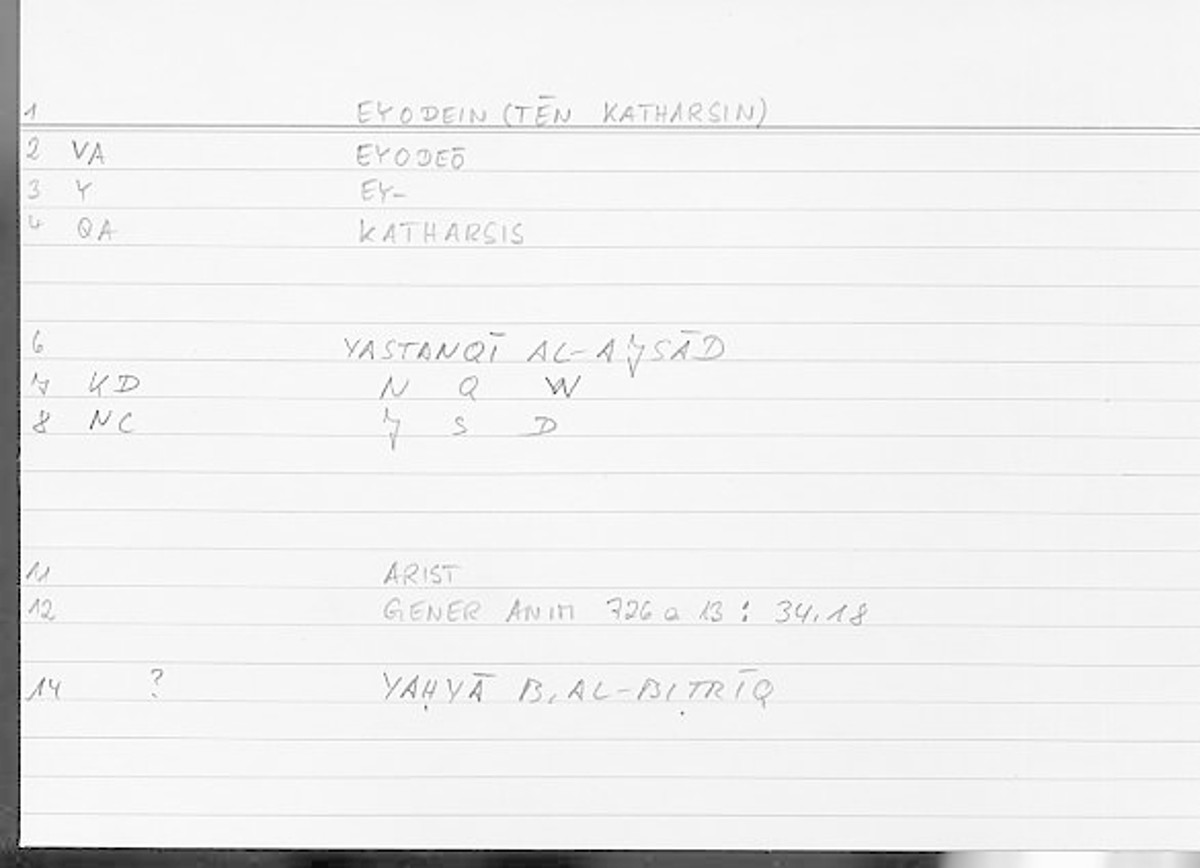 1 EYODEIN (TĒN KATHARSIN)
2 VA EYODEŌ
3 Y EY-
4 QA KATHARSIS
6 YASTANQĪ AL-AJSĀD
7 KD N Q W
8 NC J S D
11 ARIST
12 GENER ANIM 726 a 13 : 34,18
14 ? YAḤYĀ B, AL-BIṬRĪQ